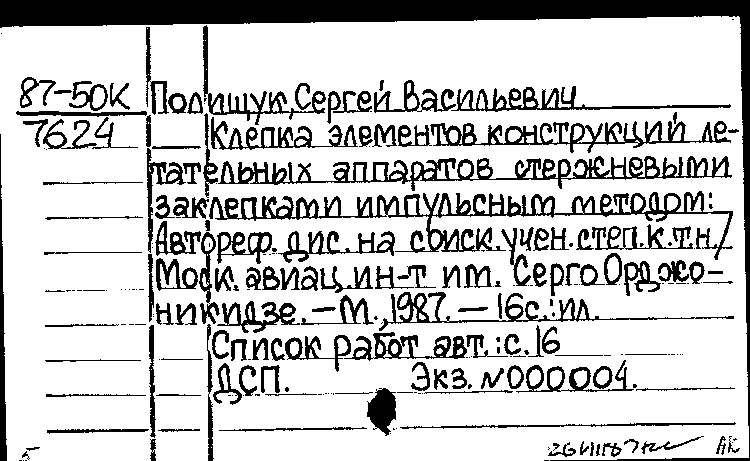 87-50К Полищук, Сергей Васильевич.
7624 Клепка элементов конструкций ле-
тательных аппаратов стержневыми
заклепками импульсным методом:
Автореф. дис. на соиск. учен. степ. к.т.н./
Моск. авиац. ин-т им. Серго Орджо-
никидзе. — М., 1987. — 16с.: ил.
Список работ авт.: с.16
ДСП. Экз. N000004.
5 АК